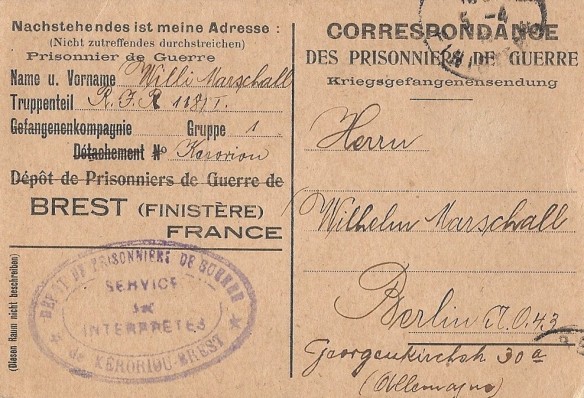 Nachstehendes ist meine Adresse :
(Nicht zutreffendes durchstreichen)
Prisonnier de Guerre
Name u. Vorname Willi Marschall
Truppenteil R.I.R. 118/I.
Gefangenenkompagnie Gruppe 1
Détachement No Keroriou
Dépôt de Prisonniers de Guerre de
BREST (FINISTÈRE)
FRANCE
(Diesen Raum nicht beschreiben)
DÉPÔT DE PRISONNIERS DE GUERRE
SERVICE
des
INTERPRÈTES
de KERORIOU-BREST
CORRESPONDANCE
DES PRISONNIERS DE GUERRE
Kriegsgefangenensendung
Herrn
Wilhelm Marschall
Berlin N.O.43
Georgenkirchstr 30a
(Allemagne)